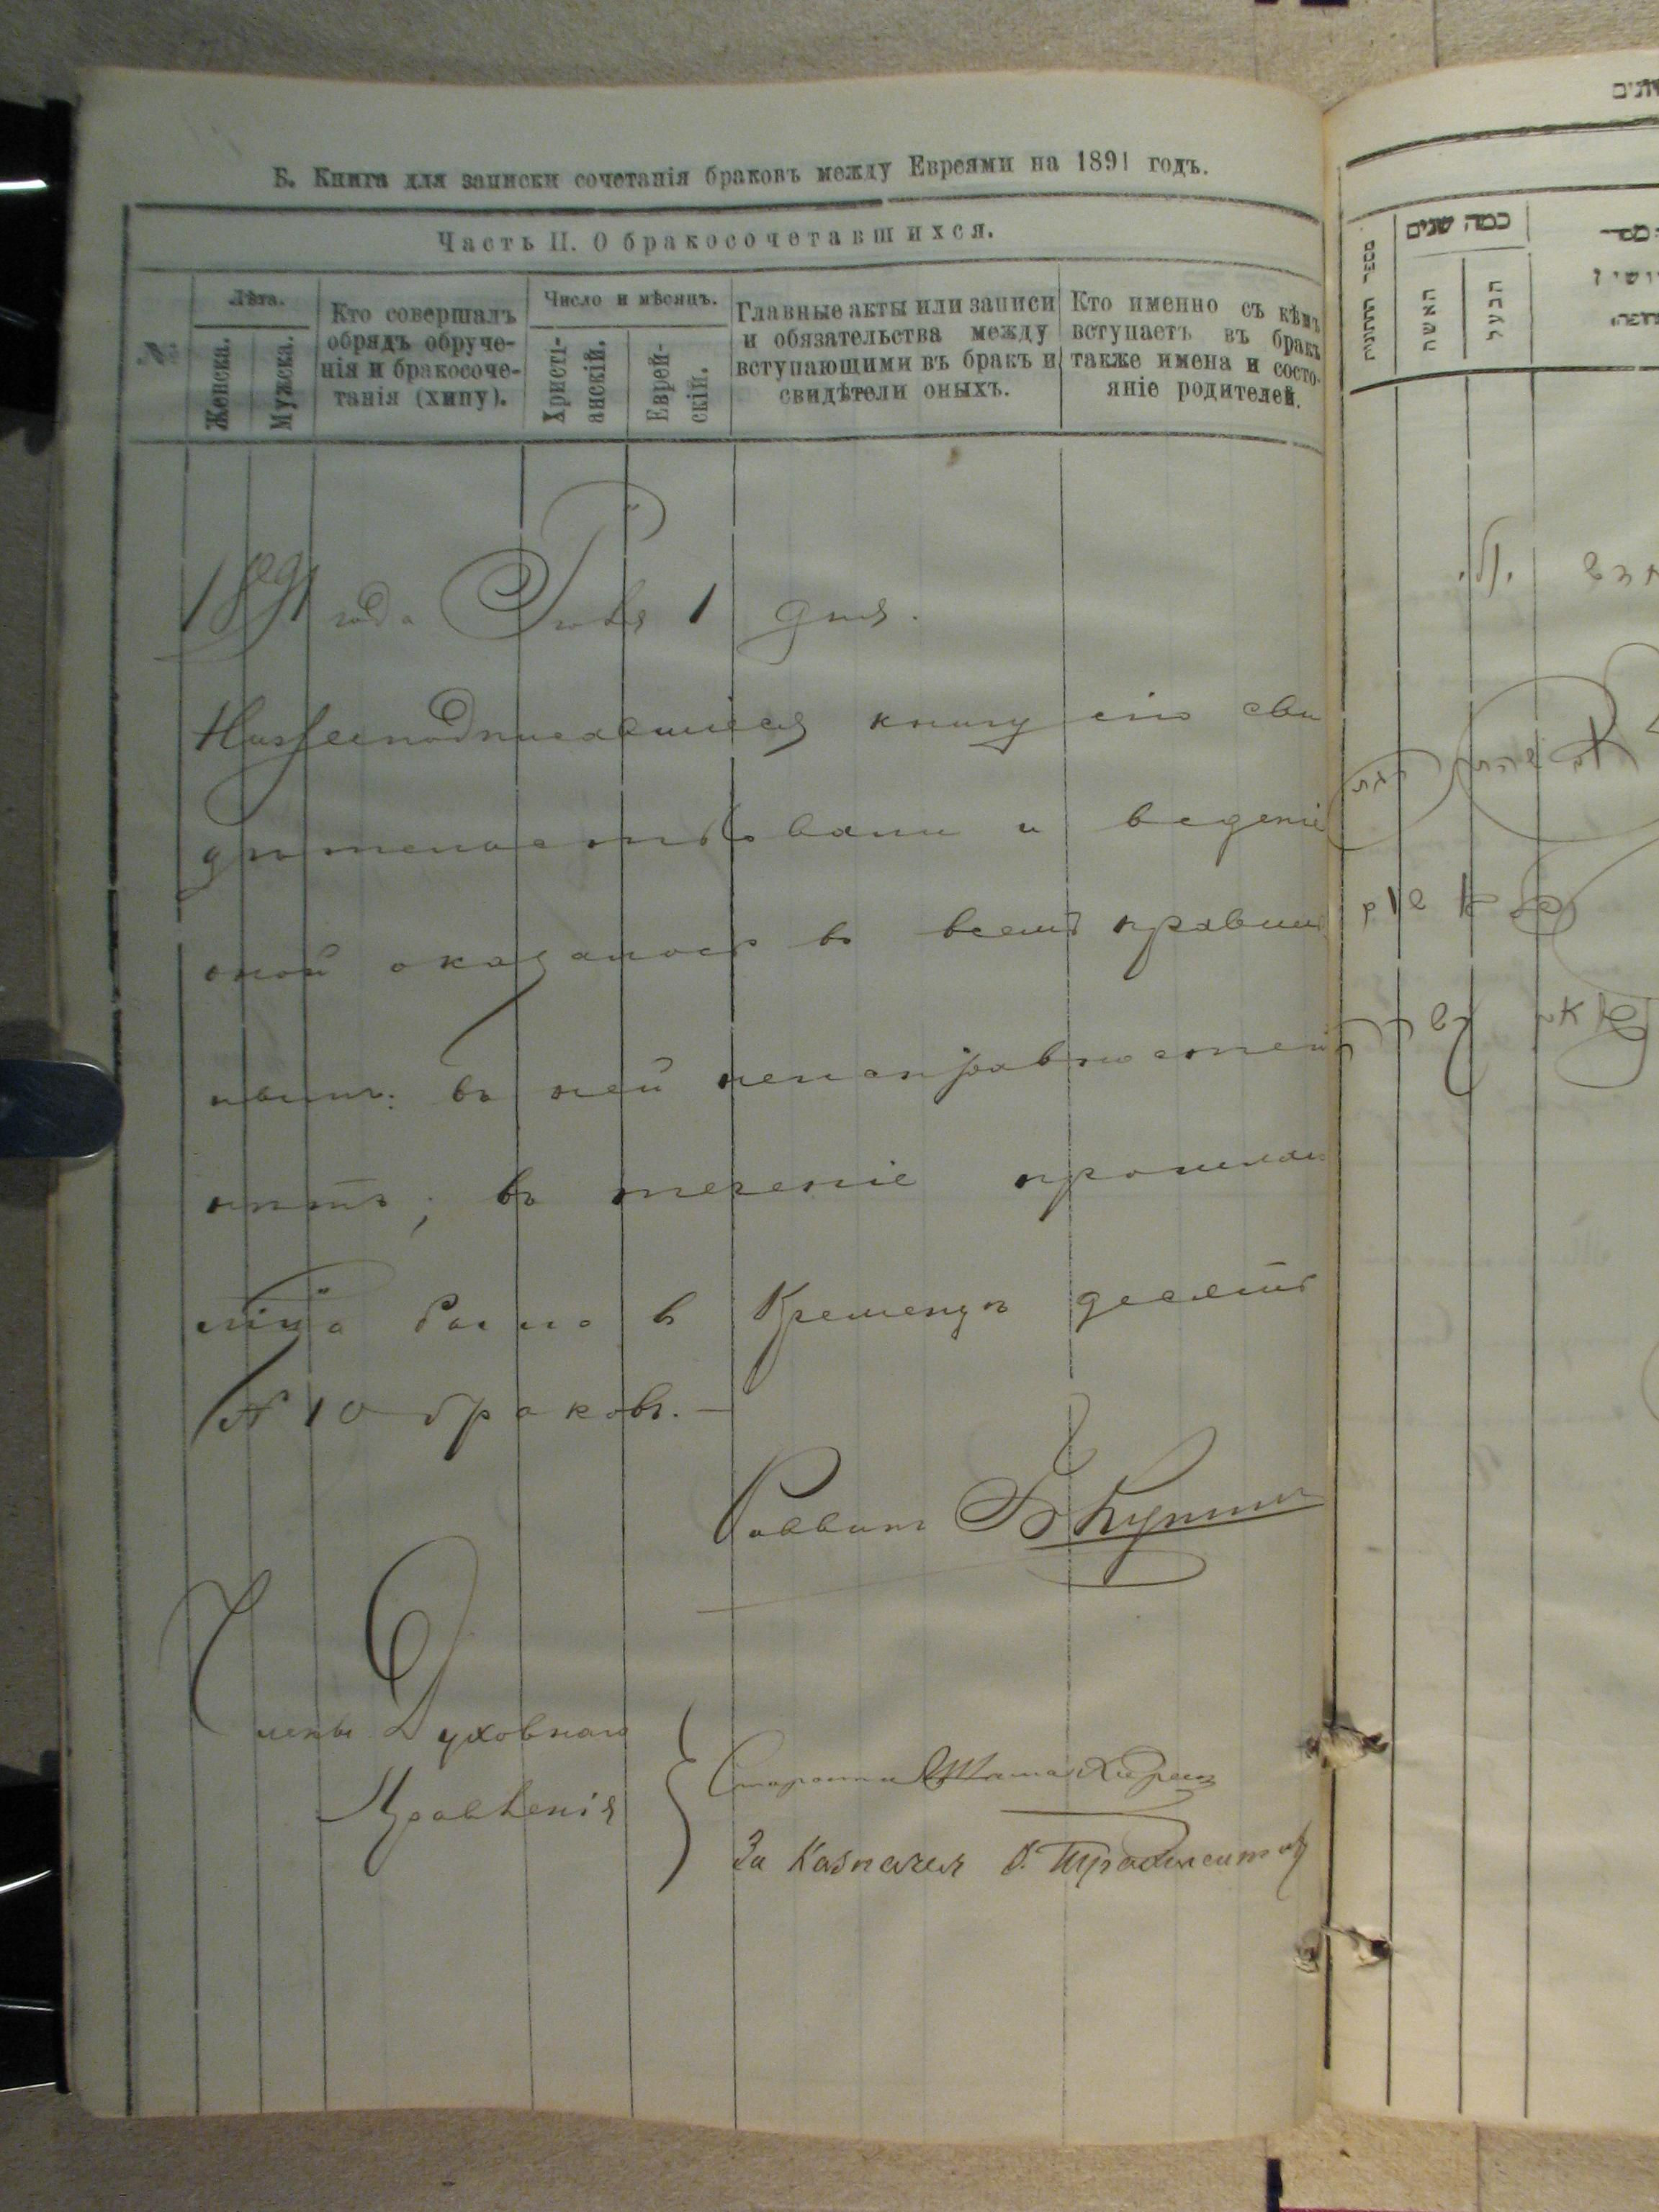 Б. Книга для записки сочетанія браковъ между Евреями на 1891 годъ.
Часть II. О бракосочетавшихся.
№
Лѣта.
Женска.
Мужска.
Кто совершалъ
обрядъ обруче-
нія и бракосоче-
танія (хипу).
Число и мѣсяцъ.
Христі-
анскій.
Еврей-
скій.
Главные акты или записи
и обязательства между
вступающими въ бракъ и
свидѣтели оныхъ.
Кто именно съ кѣмъ
вступаетъ въ бракъ
также имена и состо-
яніе родителей.
1891 года Іюля 1 дня.
Нижеподписавшіеся книгу сію сви
дѣтельствовали и веденіе
оной оказалось во всемъ правиль
нымъ: въ ней неисправностей
нѣтъ; въ теченіе прошлаго
мѣца было въ Кременцѣ десять
№ 10 браковъ. —
Раввинъ
Члены Духовнаго
Правленія
Староста
За Казначея
כמה שנים
מספר החתונות
האשה
הבעל
יולי